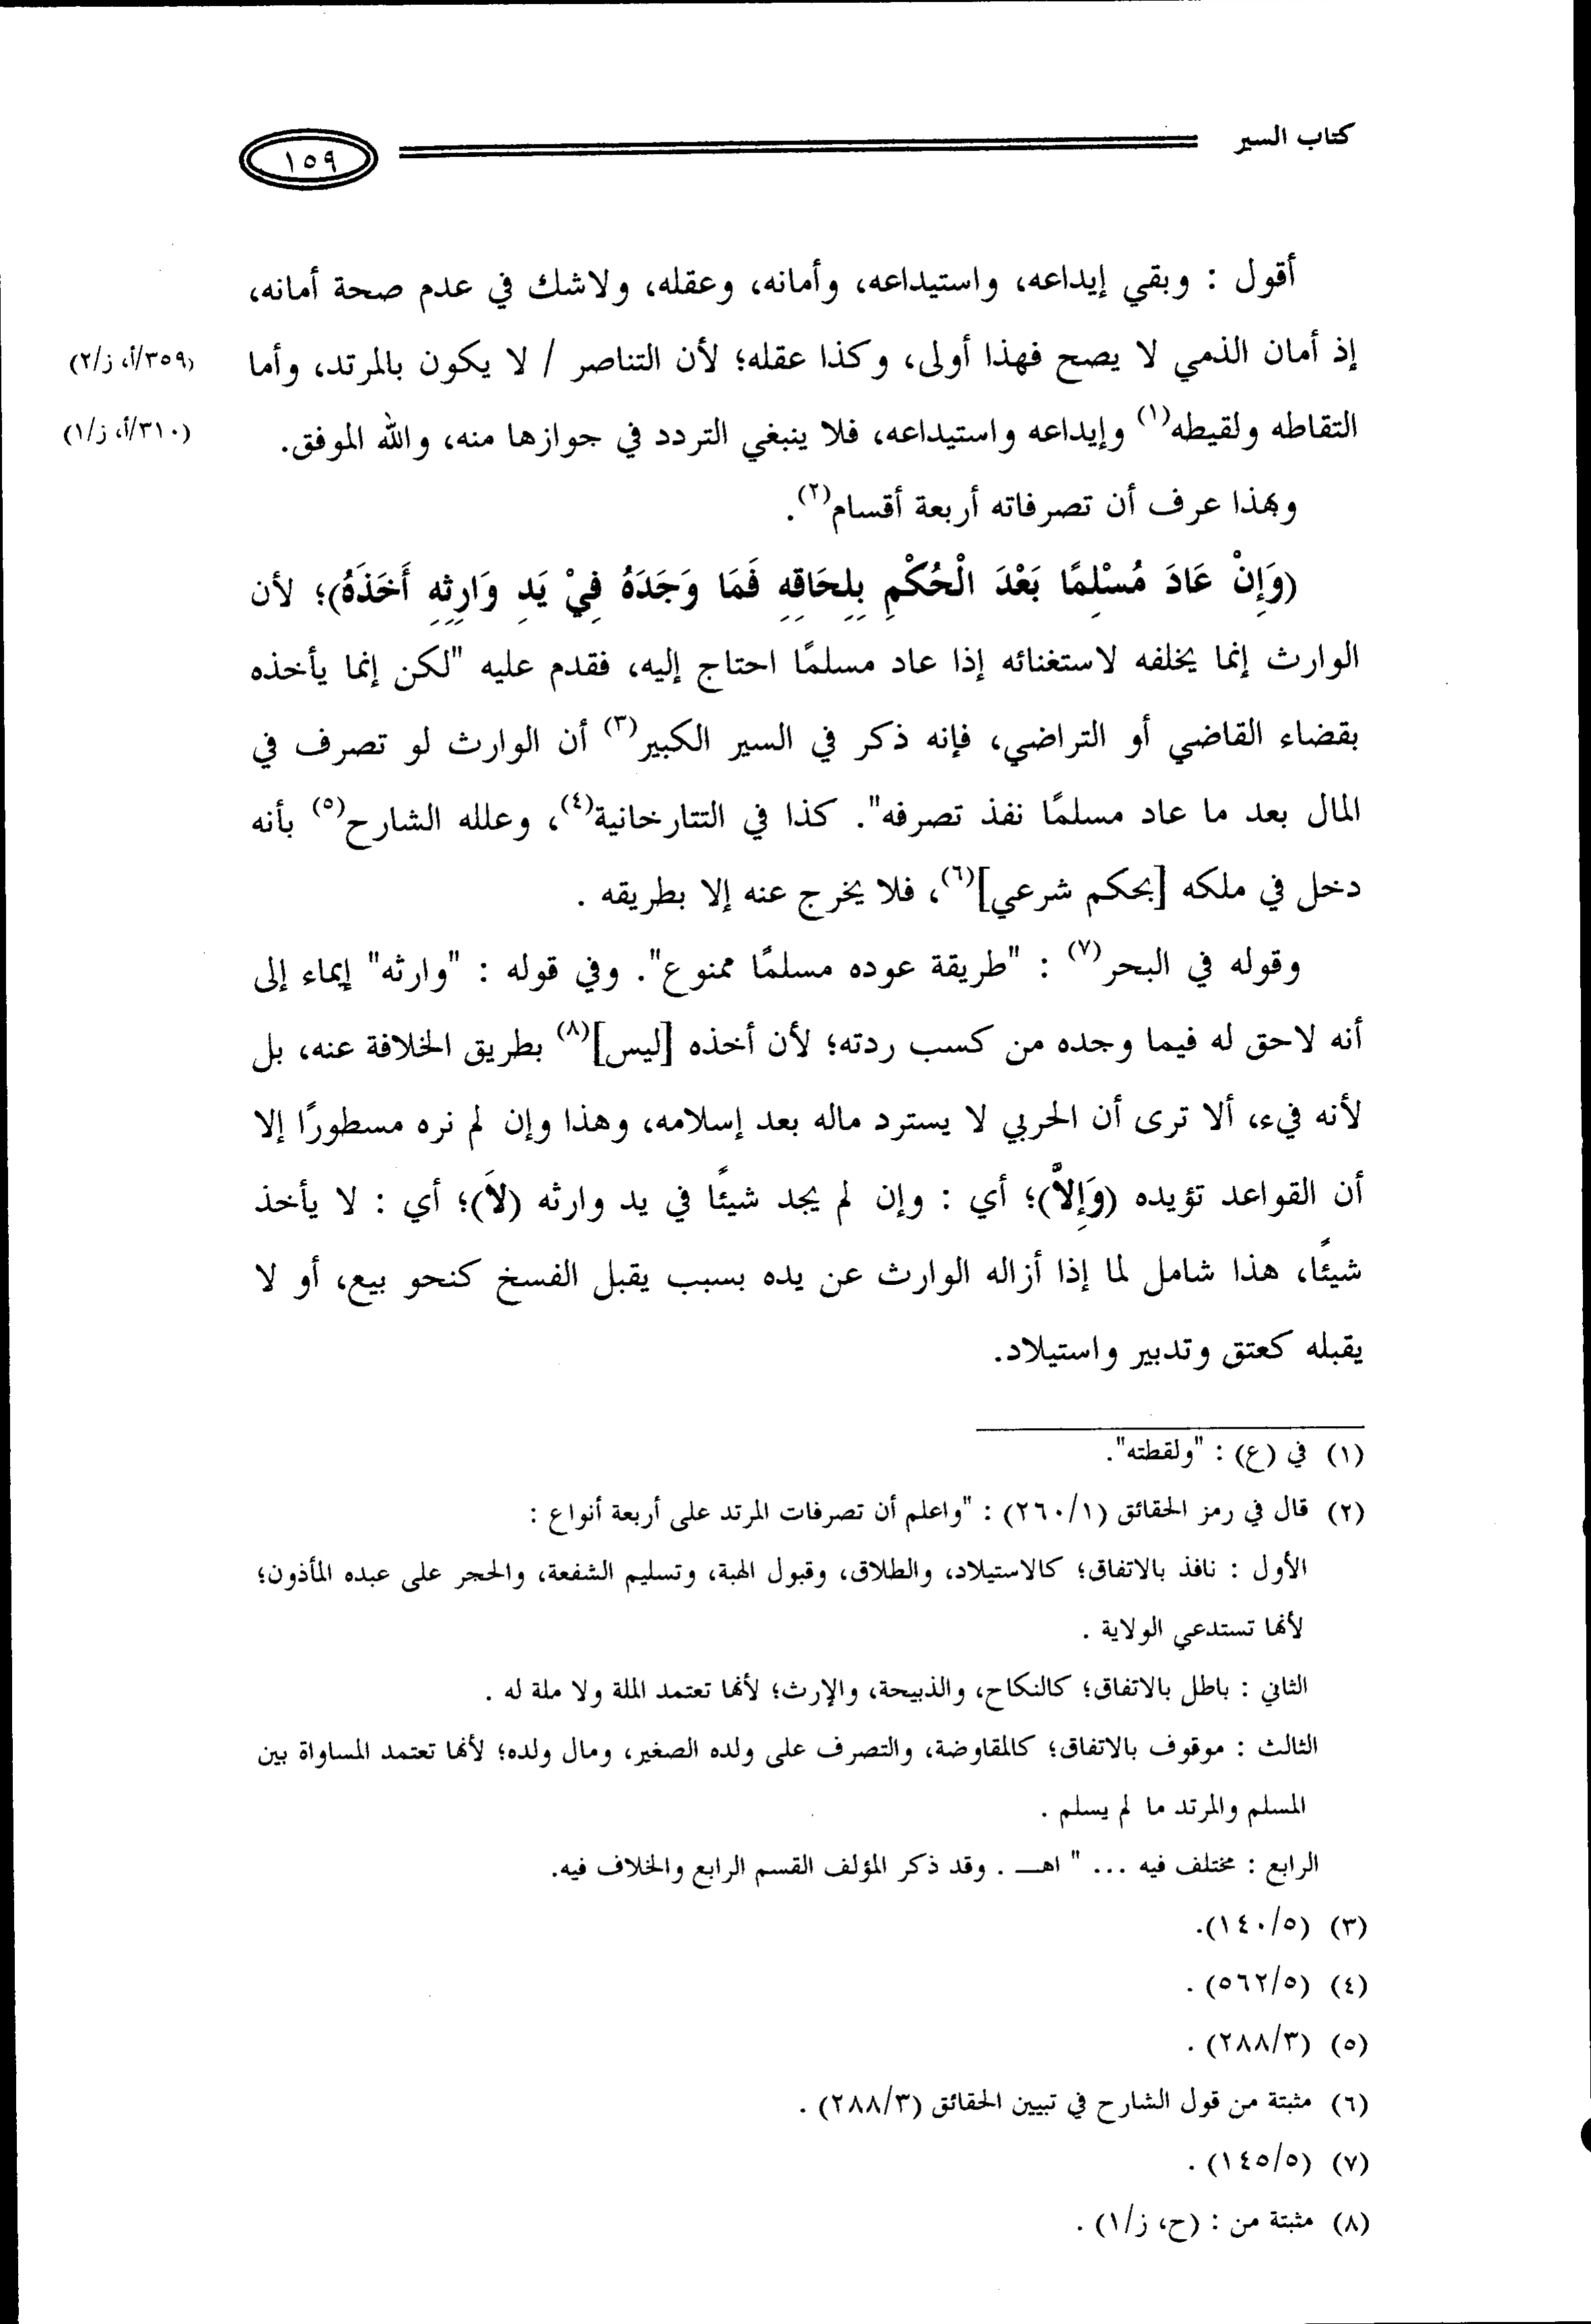 كتاب السير
١٥٩
أقول : وبقي إيداعه، واستيداعه، وأمانه، وعقله، ولاشك في عدم صحة أمانه،
إذ أمان الذمي لا يصح فهذا أولى، وكذا عقله؛ لأن التناصر / لا يكون بالمرتد، وأما
(٣٥٩/أ، ز/٢)
التقاطه ولقيطه(١) وإيداعه واستيداعه، فلا ينبغي التردد في جوازها منه، والله الموفق.
(٣١٠/أ، ز/١)
وبهذا عرف أن تصرفاته أربعة أقسام(٢).
(وَإِنْ عَادَ مُسْلِمًا بَعْدَ الْحُكْمِ بِلِحَاقِهِ فَمَا وَجَدَهُ فِيْ يَدِ وَارِثِهِ أَخَذَهُ)؛ لأن
الوارث إنما يخلفه لاستغنائه إذا عاد مسلمًا احتاج إليه، فقدم عليه "لكن إنما يأخذه
بقضاء القاضي أو التراضي، فإنه ذكر في السير الكبير(٣) أن الوارث لو تصرف في
المال بعد ما عاد مسلمًا نفذ تصرفه". كذا في التتارخانية(٤)، وعلله الشارح(٥) بأنه
دخل في ملكه [بحكم شرعي](٦)، فلا يخرج عنه إلا بطريقه .
وقوله في البحر(٧) : "طريقة عوده مسلمًا ممنوع". وفي قوله : "وارثه" إيماء إلى
أنه لاحق له فيما وجده من كسب ردته؛ لأن أخذه [ليس](٨) بطريق الخلافة عنه، بل
لأنه فيء، ألا ترى أن الحربي لا يسترد ماله بعد إسلامه، وهذا وإن لم نره مسطورًا إلا
أن القواعد تؤيده (وَإِلاَّ)؛ أي : وإن لم يجد شيئًا في يد وارثه (لاَ)؛ أي : لا يأخذ
شيئًا، هذا شامل لما إذا أزاله الوارث عن يده بسبب يقبل الفسخ كنحو بيع، أو لا
يقبله كعتق وتدبير واستيلاد.
(١) في (ع) : "ولقطته".
(٢) قال في رمز الحقائق (٢٦٠/١) : "واعلم أن تصرفات المرتد على أربعة أنواع :
الأول : نافذ بالاتفاق؛ كالاستيلاد، والطلاق، وقبول الهبة، وتسليم الشفعة، والحجر على عبده المأذون؛
لأنها تستدعي الولاية .
الثاني : باطل بالاتفاق؛ كالنكاح، والذبيحة، والإرث؛ لأنها تعتمد الملة ولا ملة له .
الثالث : موقوف بالاتفاق؛ كالمقاوضة، والتصرف على ولده الصغير، ومال ولده؛ لأنها تعتمد المساواة بين
المسلم والمرتد ما لم يسلم .
الرابع : مختلف فيه ... " اهـ . وقد ذكر المؤلف القسم الرابع والخلاف فيه.
(٣) (١٤٠/٥).
(٤) (٥٦٢/٥) .
(٥) (٢٨٨/٣) .
(٦) مثبتة من قول الشارح في تبيين الحقائق (٢٨٨/٣) .
(٧) (١٤٥/٥) .
(٨) مثبتة من : (ح، ز/١) .